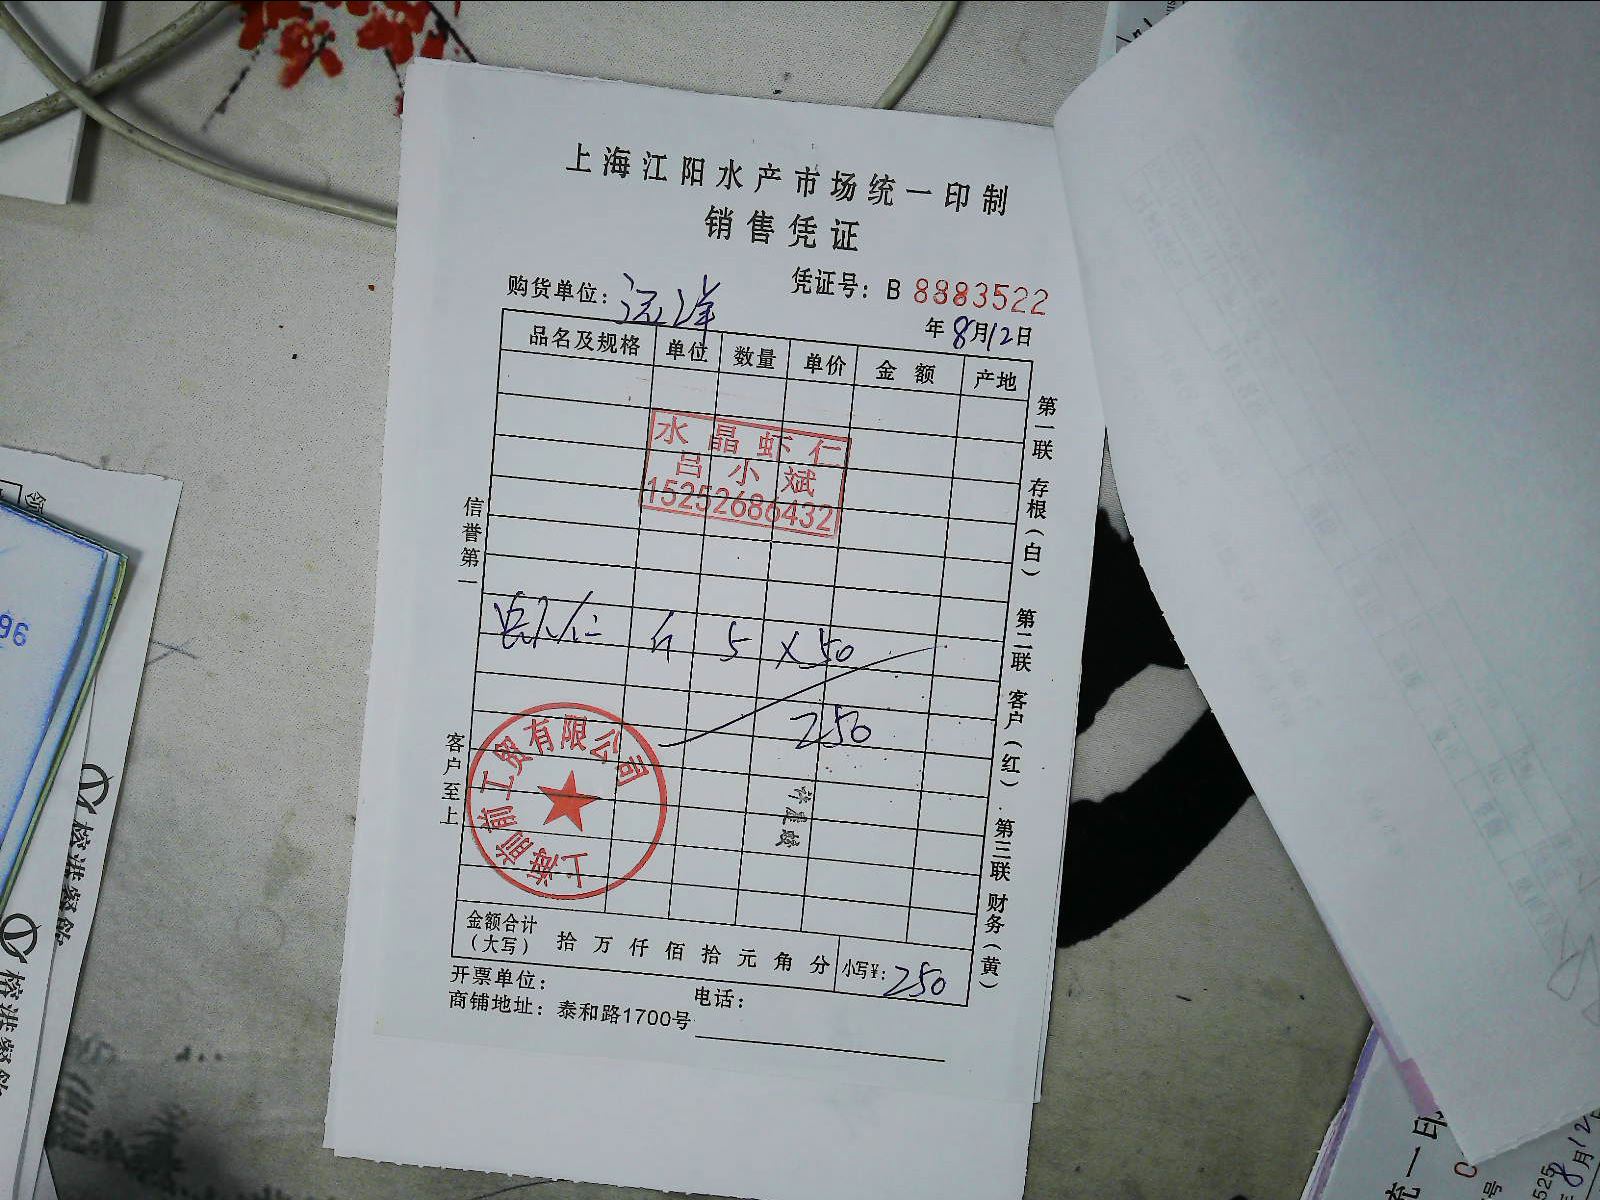 上海江阳水产市场统一印制
销售凭证
凭证号：B 8883522
购货单位：远洋
年8月12日
品名及规格 单位 数量 单价 金额 产地
水晶虾仁
吕小斌
15252686432
虾仁 斤 5 × 50
250
上海前前工贸有限公司
金额合计（大写） 拾 万 仟 佰 拾 元 角 分 小写¥：250
开票单位： 电话：
商铺地址：泰和路1700号
信誉第一
客户至上
第一联 存根（白） 第二联 客户（红） 第三联 财务（黄）
96
统一印
8月12